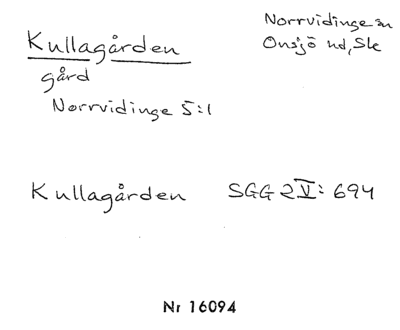 Kullagården
Norrvidinge sn
Onsjö hd, Sk
gård
Norrvidinge 5:1
Kullagården SGG 2 V: 694
Nr 16094